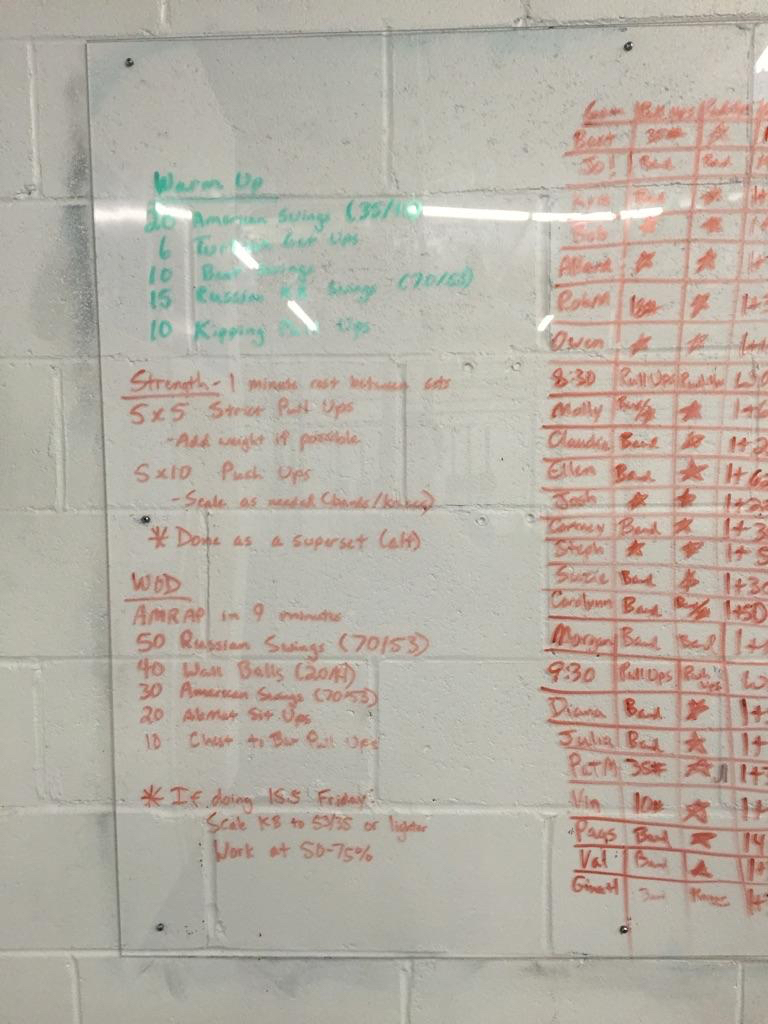 Warm Up
20 American Swings (35/
6 Turkish Get Ups
10 Swings
15 Russian KB Swings (70/53)
10 Kipping Pull Ups
Strength - 1 minute rest between sets
5x5 Strict Pull Ups
-Add weight if possible
5x10 Push Ups
-Scale as needed (bands/knees)
* Done as a superset (alt)
WOD
AMRAP in 9 minutes
50 Russian Swings (70/53)
40 Wall Balls (20/14)
30 American Swings (70/53)
20 Abmat Sit Ups
10 Chest to Bar Pull Ups
* If doing 15.5 Friday:
Scale KB to 53/35 or lighter
Work at 50-75%
Pull Ups
35#
Jo! Band Band
Bob ★ ★
★ ★
RobM ★
Owen ★ ★
8:30 Pull Ups
Molly ★ 1+6
Claudia Band ★ 1+2
Ellen Band ★ 1+62
Josh ★ ★ 1+2
Band ★ 1+3
Steph ★ ★ 1+5
Suzie Band ★ 1+30
Carolynn Band 1+50
Morgan Band Band 1+
9:30 Pull Ups Push Ups W
Diana Band ★ 1+
Julia Band ★ 1+
PatM 35# ★ 1+
Vin 10# ★ 1+
Pags Band ★
Val Band ★ 1+